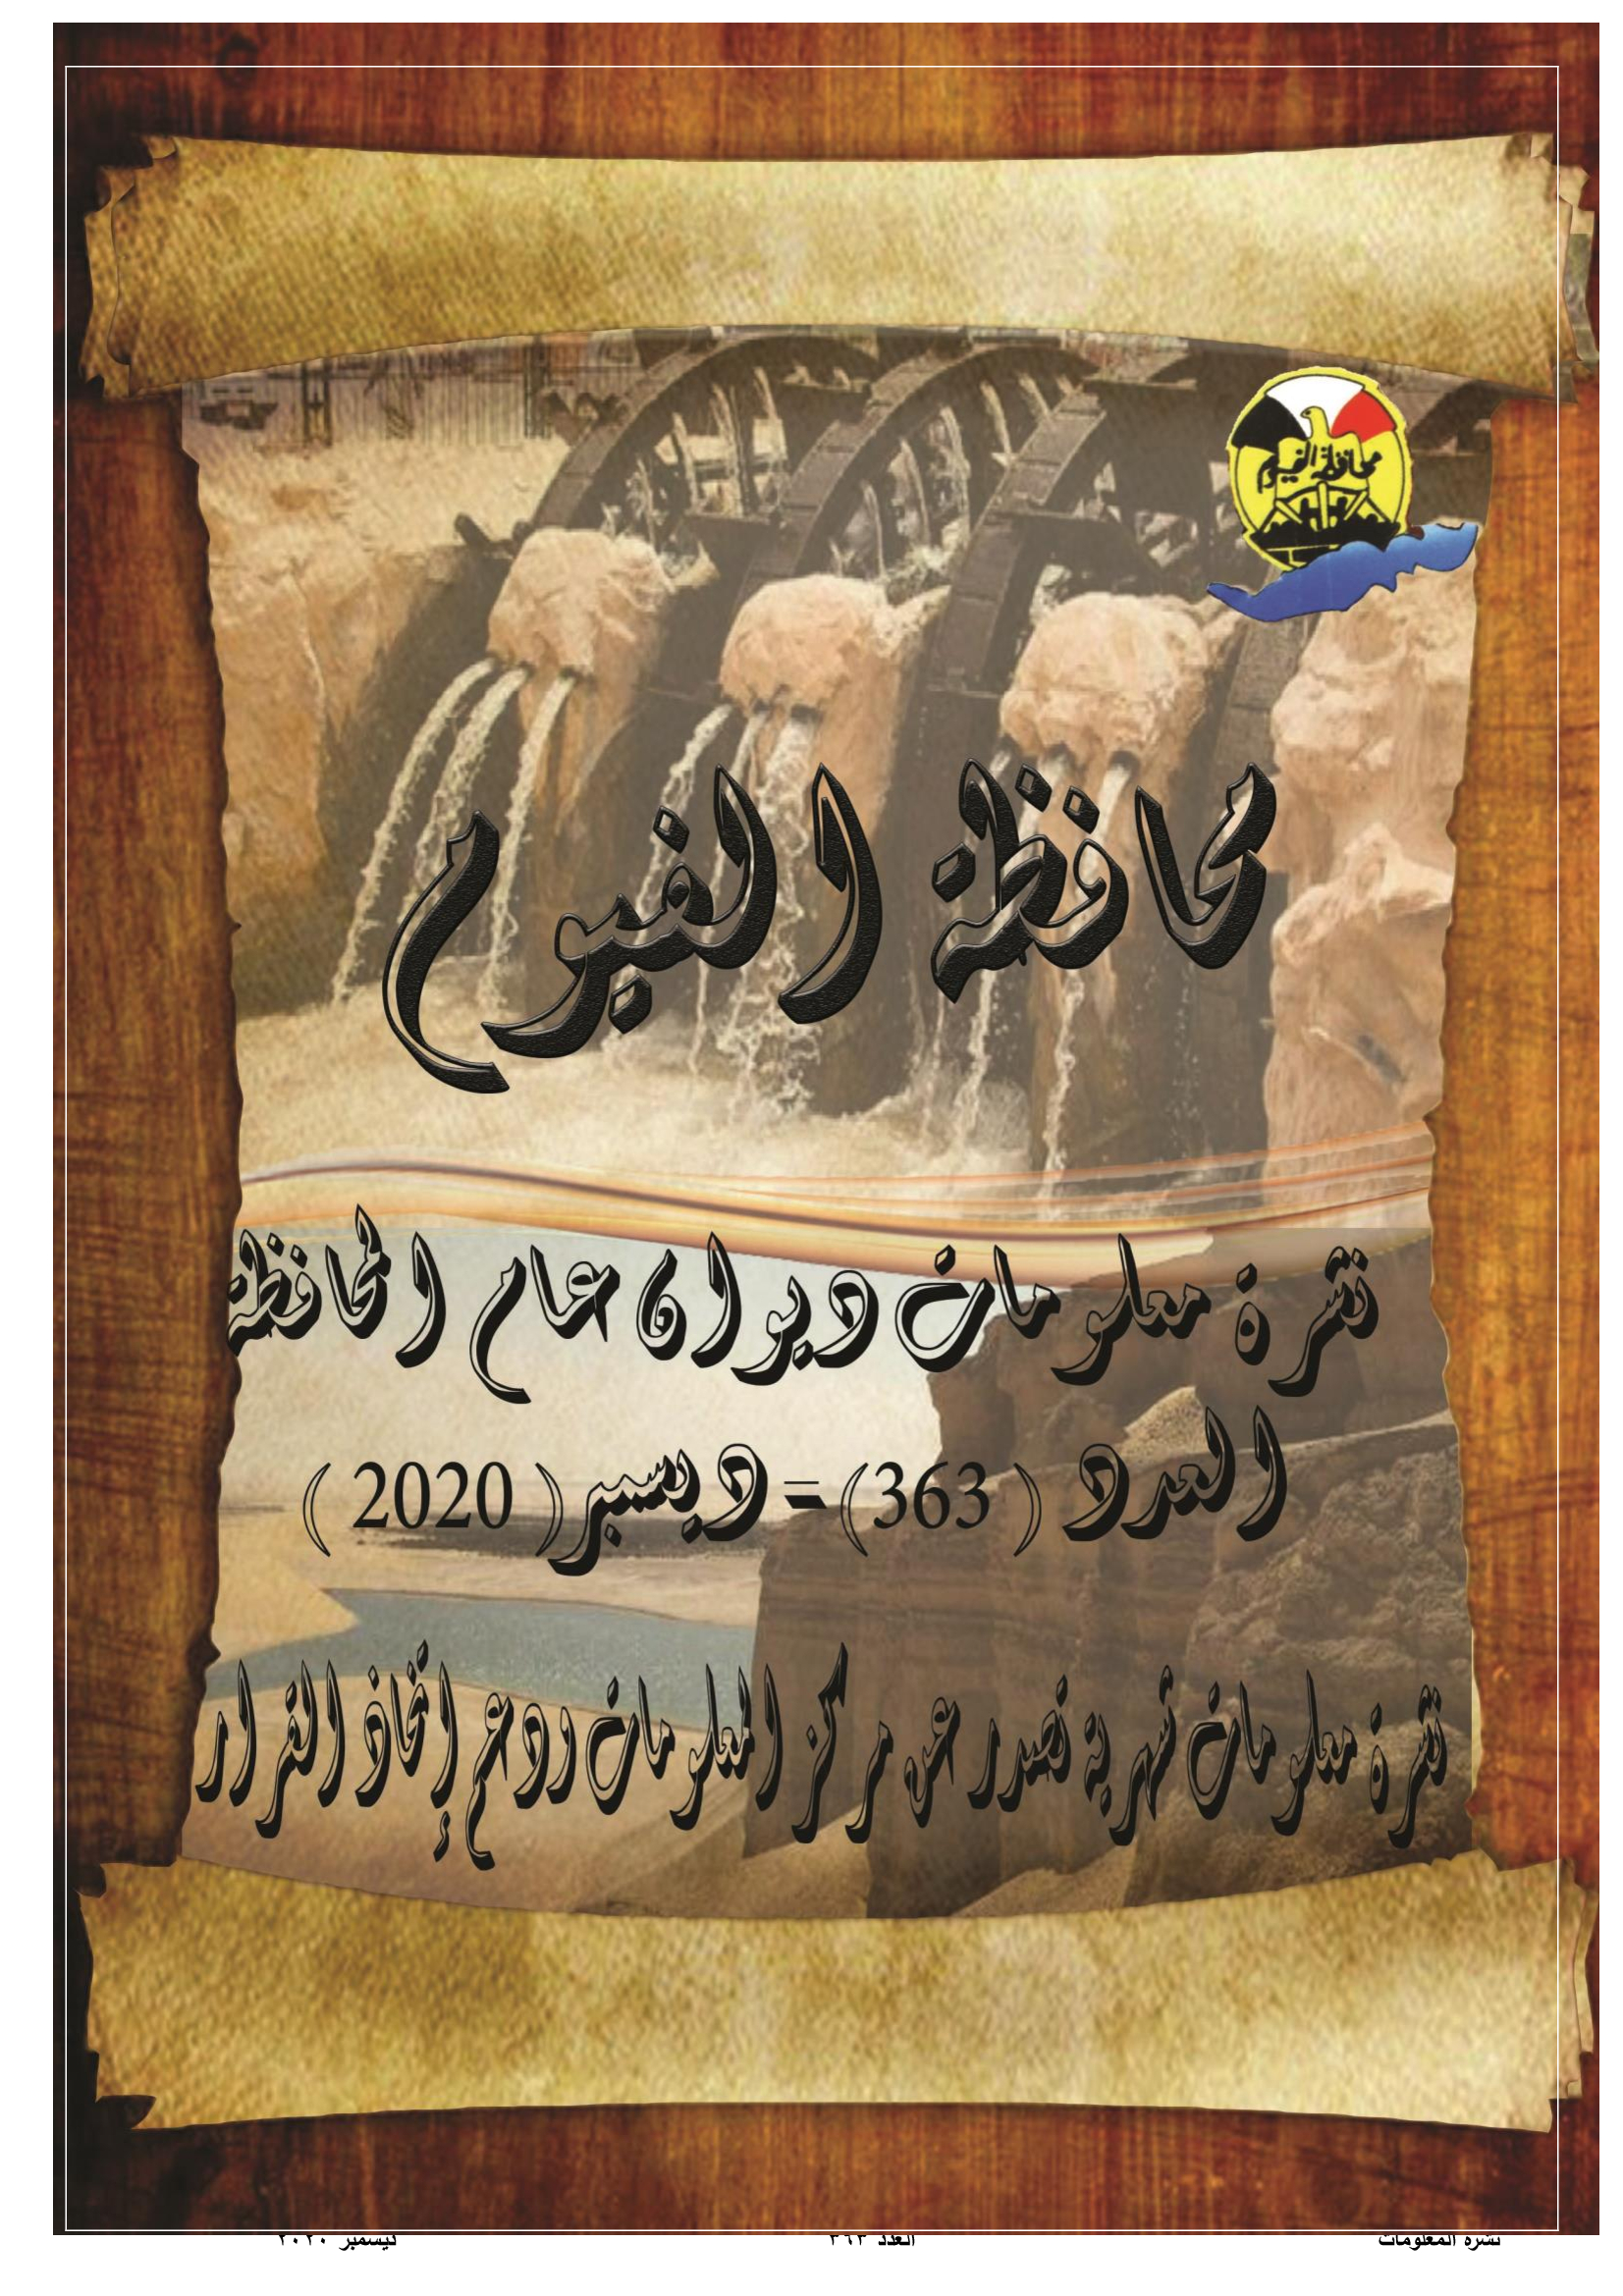 محافظة الفيوم
محافظة الفيوم
نشرة معلومات ديوان عام المحافظة
العدد ( 363) - ديسمبر( 2020 )
نشرة معلومات شهرية تصدر عن مركز المعلومات ودعم إتخاذ القرار
نشرة المعلومات العدد ٣٦٣ ديسمبر ٢٠٢٠